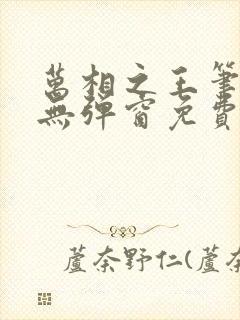 萬相之王筆
無彈窗免費
蘆奈野仁(蘆奈